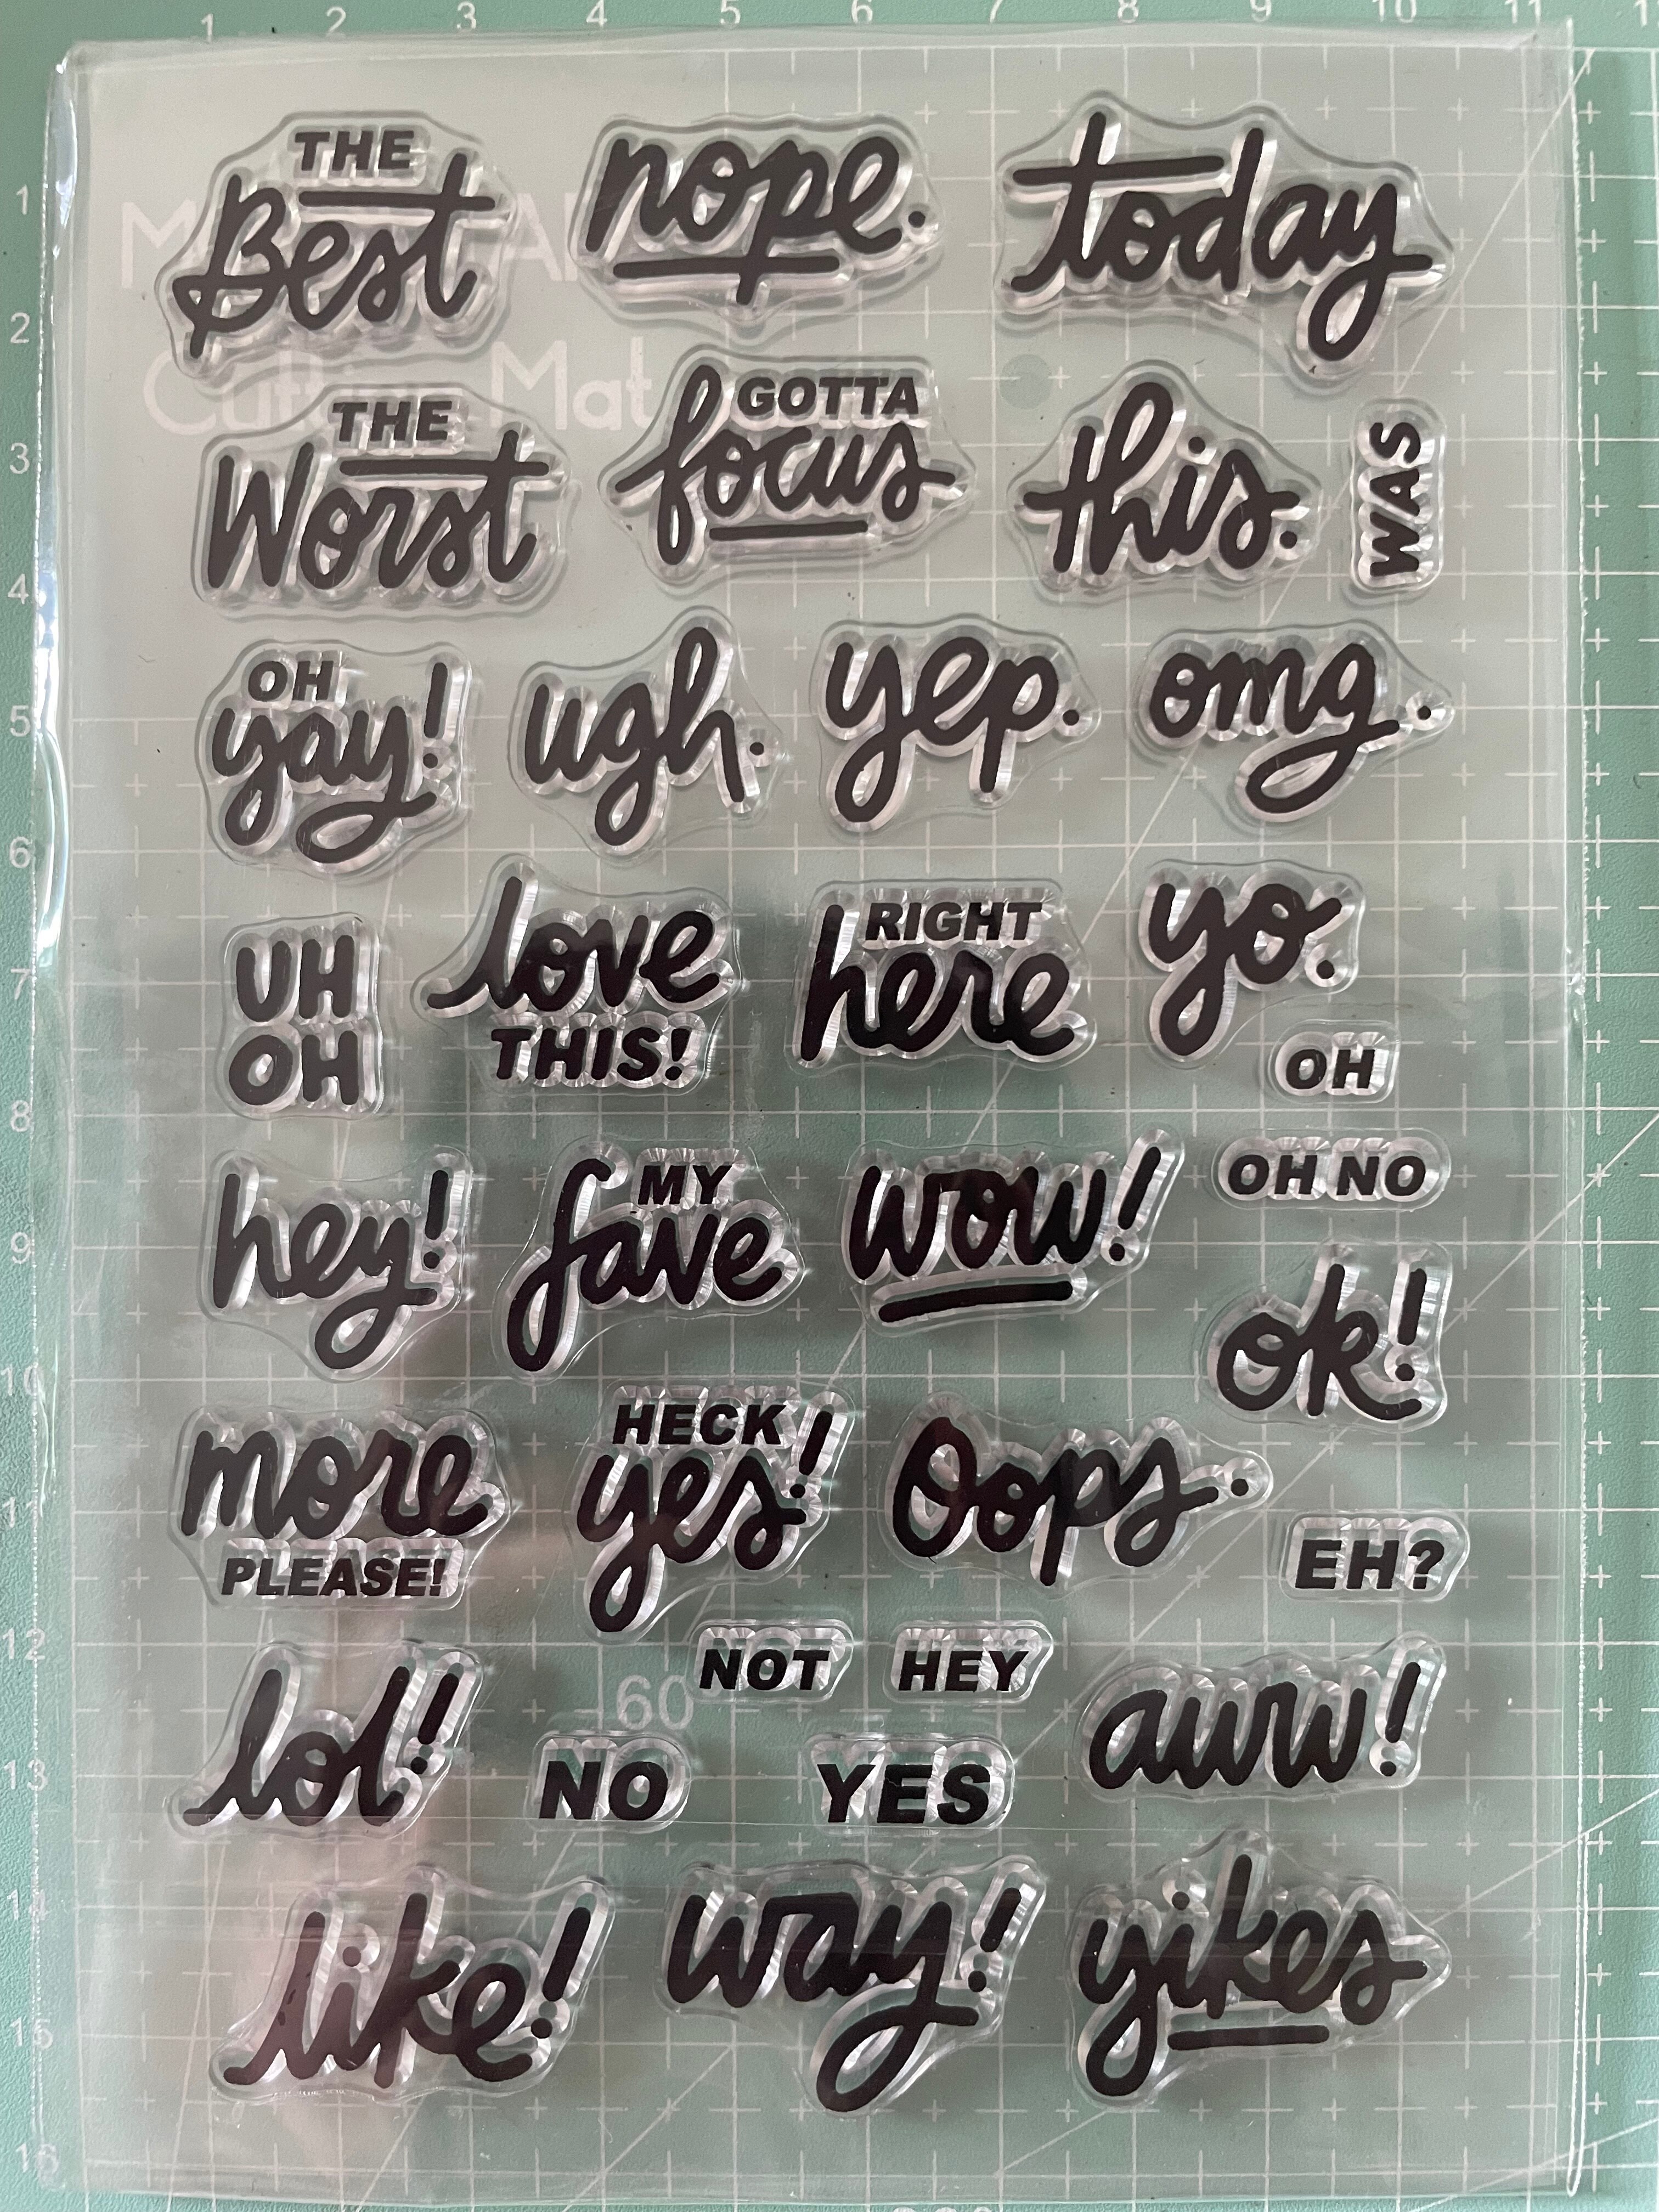 1 2 3 4 5 6 7 8 9 10 11
THE
Best
nope.
today
1
2
3
4
5
6
7
8
9
10
11
12
13
14
15
16
Cutting Mat
THE
Worst
GOTTA
focus
this.
WAS
OH
yay!
ugh.
yep.
omg.
UH
OH
love
THIS!
RIGHT
here
yo.
OH
hey!
MY
fave
wow!
OH NO
ok!
more
PLEASE!
HECK
yes!
Oops.
EH?
NOT
HEY
60
lol!
NO
YES
aww!
like!
way!
yikes